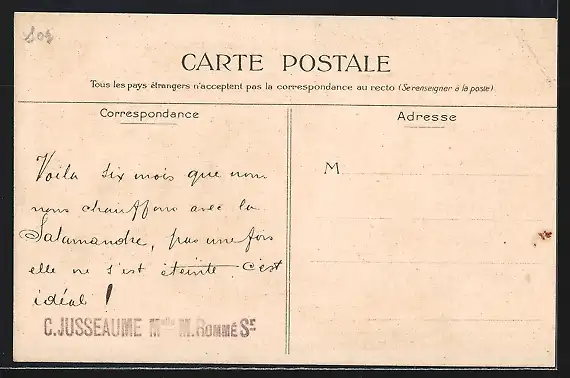 CARTE POSTALE
Tous les pays étrangers n'acceptent pas la correspondance au recto (Se renseigner à la poste)
Correspondance
Adresse
Voila six mois que nous
nous chauffons avec la
Salamandre, pas une fois
elle ne s'est éteinte. C'est
idéal !
M
C. JUSSEAUME Mlle M. ROMMÉ Sr